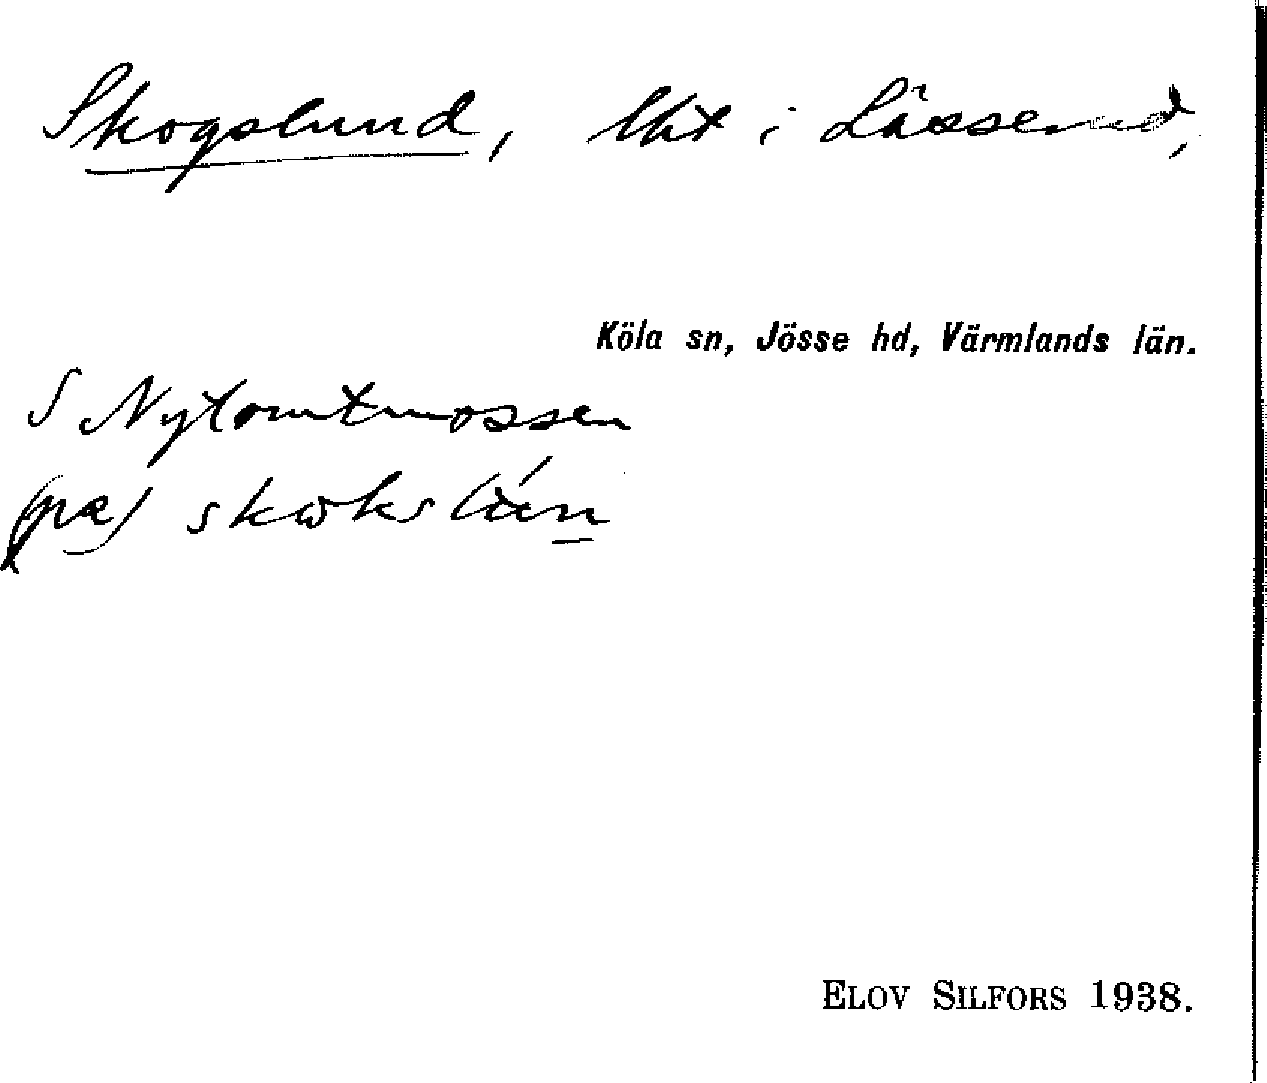 Skogslund, lht i Lässerud,
Köla sn, Jösse hd, Värmlands län.
S Nytomtmossen
(pæ)
ELOV SILFORS 1938.